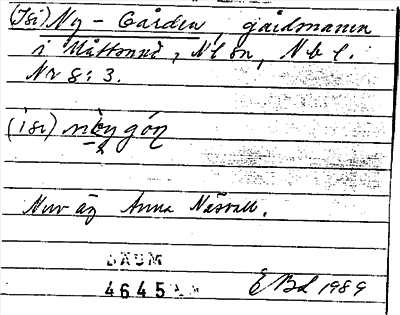 (Isi) Ny-Gården, gårdsnamn
i Måttsund, Nlön, Nbl.
Nr 8:3.
(isi)
Nuv äg Anna Näsvall.
DAUM
4645
EBd 1989